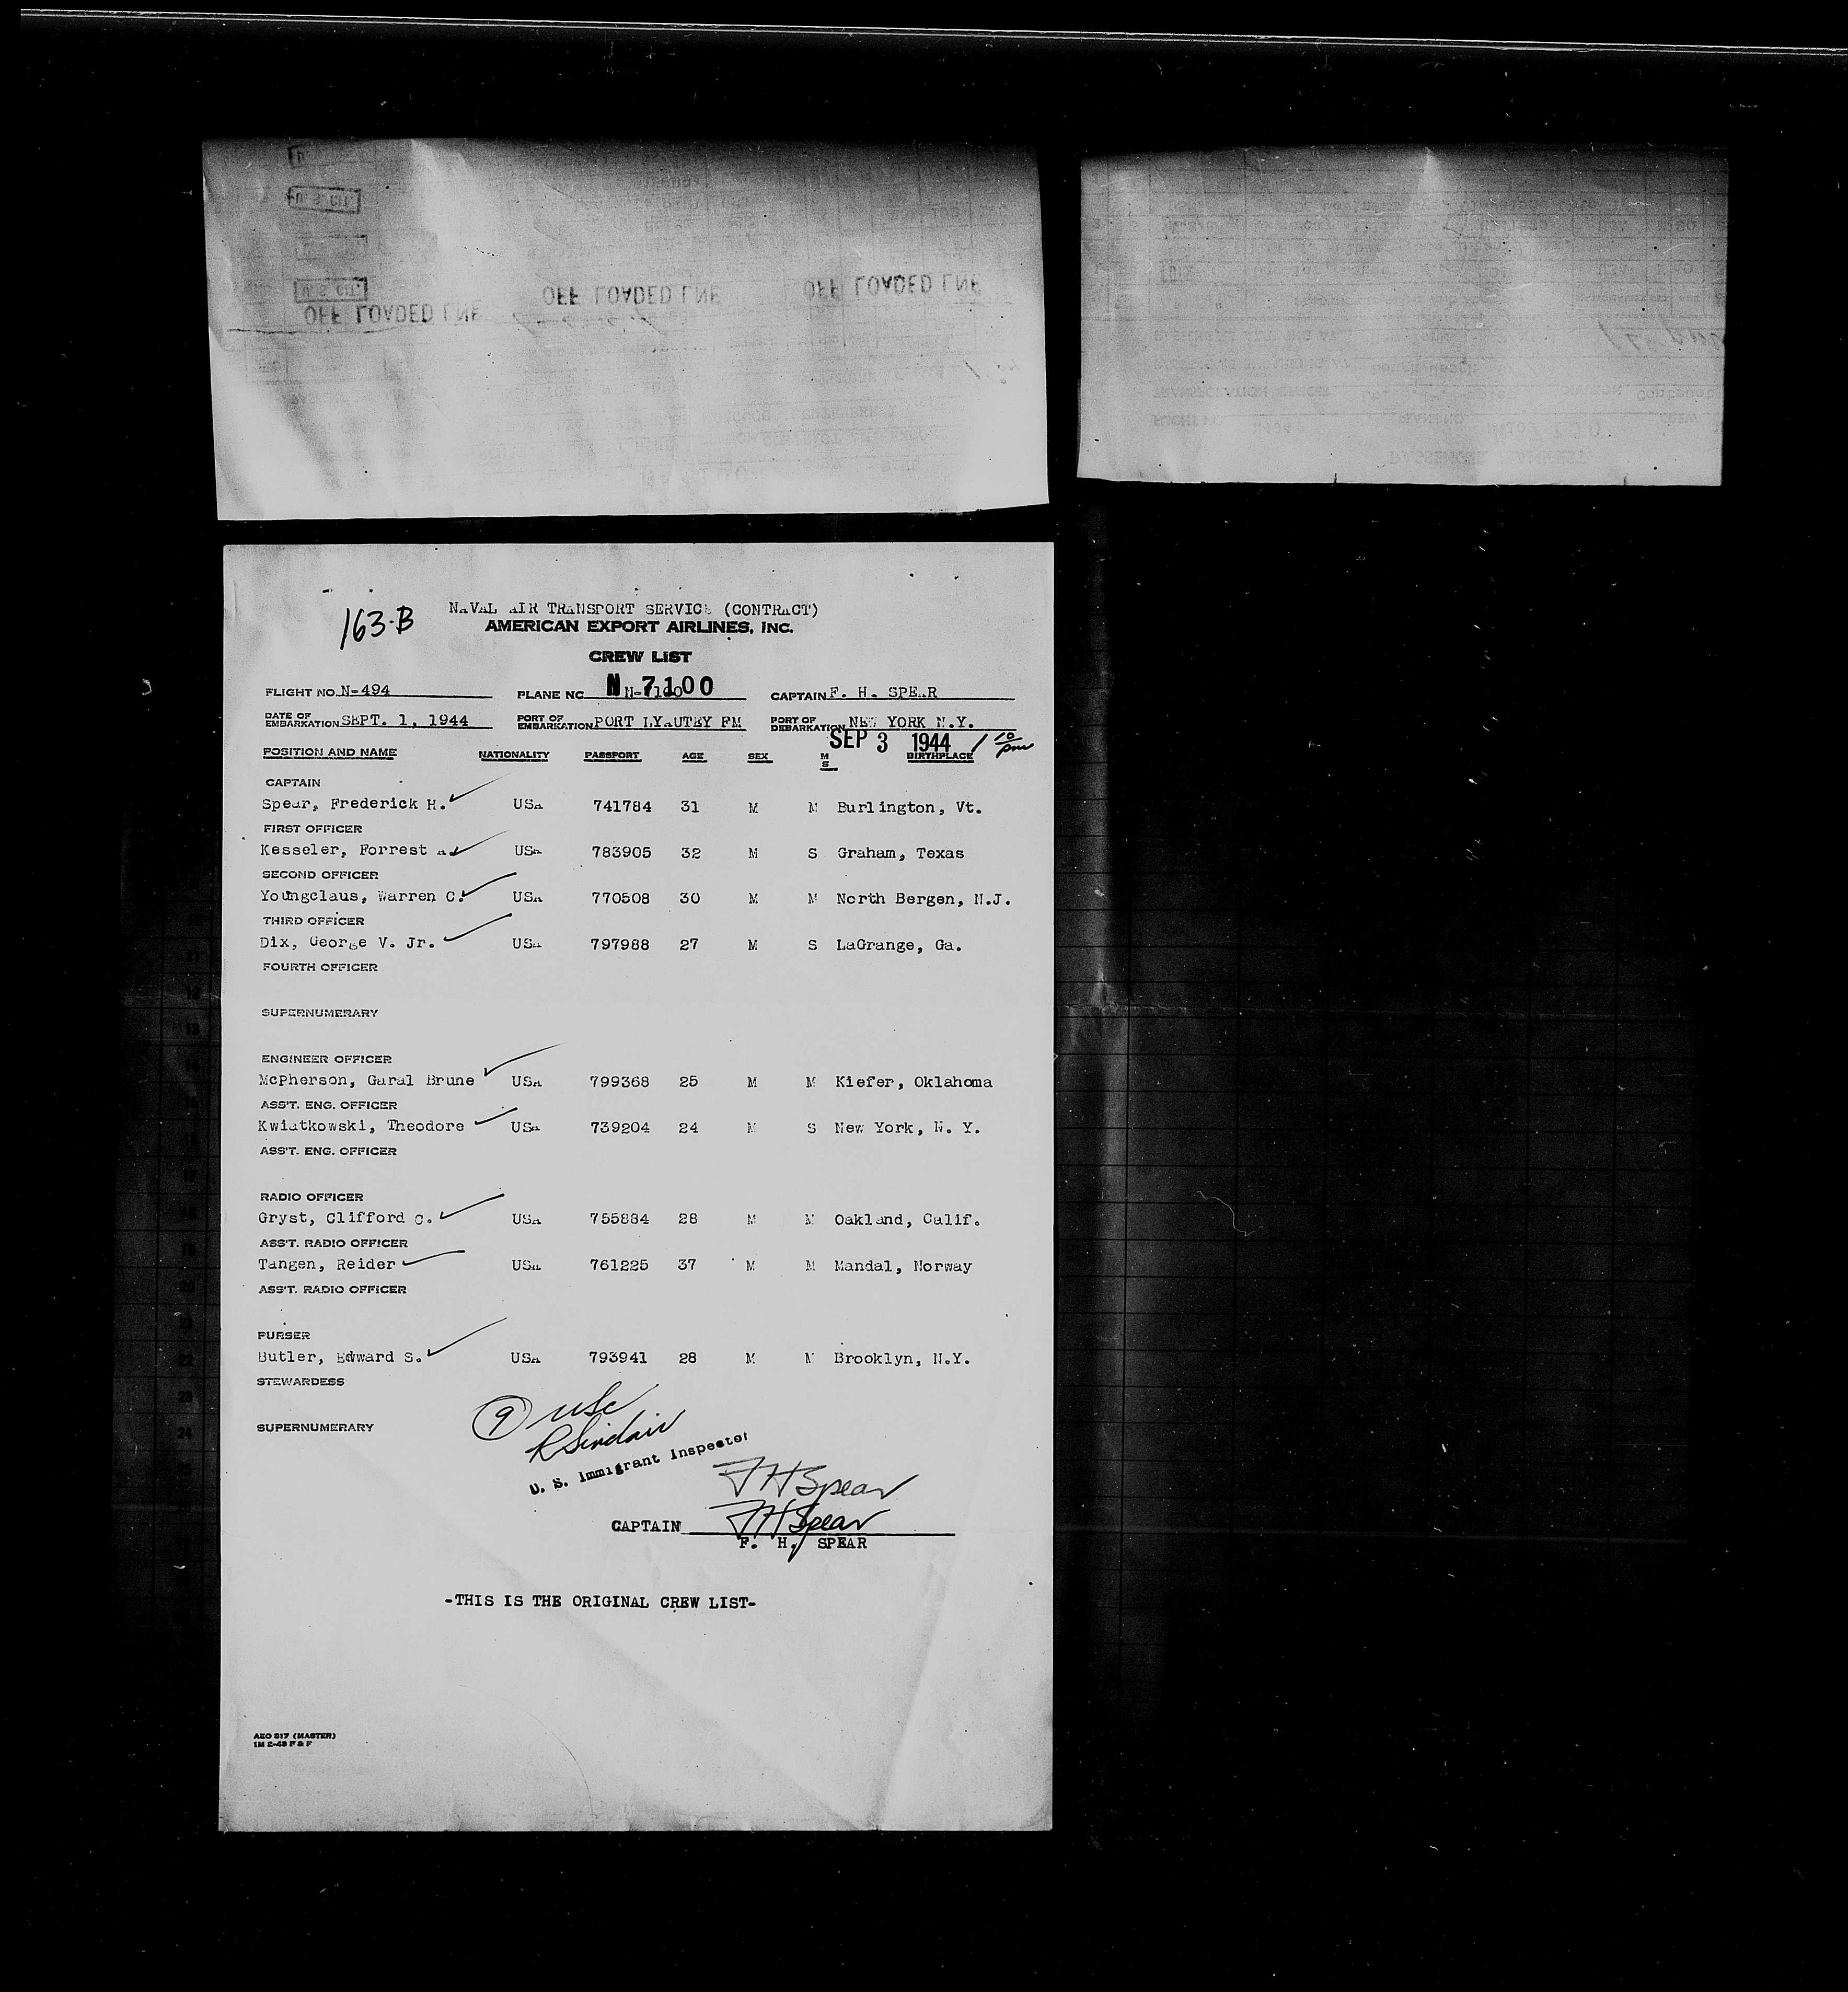 OFF LOADED LNF OFF LOADED LNF OFF LOADED LNF
163-B
NAVAL AIR TRANSPORT SERVICE (CONTRACT)
AMERICAN EXPORT AIRLINES, INC.
CREW LIST
FLIGHT NO. N-494 PLANE NO N-7100 N 7100 CAPTAIN F. H. SPEAR
DATE OF EMBARKATION SEPT. 1, 1944 PORT OF EMBARKATION PORT LYAUTEY FM PORT OF DEBARKATION NEW YORK N.Y.
SEP 3 1944 / 10 pm
POSITION AND NAME NATIONALITY PASSPORT AGE SEX M S BIRTHPLACE
CAPTAIN
Spear, Frederick H. USA 741784 31 M M Burlington, Vt.
FIRST OFFICER
Kesseler, Forrest A. USA 783905 32 M S Graham, Texas
SECOND OFFICER
Youngclaus, Warren C. USA 770508 30 M M North Bergen, N.J.
THIRD OFFICER
Dix, George V. Jr. USA 797988 27 M S LaGrange, Ga.
FOURTH OFFICER
SUPERNUMERARY
ENGINEER OFFICER
McPherson, Garal Brune USA 799368 25 M M Kiefer, Oklahoma
ASS'T. ENG. OFFICER
Kwiatkowski, Theodore USA 739204 24 M S New York, N. Y.
ASS'T. ENG. OFFICER
RADIO OFFICER
Gryst, Clifford C. USA 755884 28 M M Oakland, Calif.
ASS'T. RADIO OFFICER
Tangen, Reider USA 761225 37 M M Mandal, Norway
ASS'T. RADIO OFFICER
PURSER
Butler, Edward S. USA 793941 28 M M Brooklyn, N.Y.
STEWARDESS
SUPERNUMERARY
9 USC
R Sinclair
U. S. Immigrant Inspector
F H Spear
CAPTAIN F H Spear
F. H. SPEAR
-THIS IS THE ORIGINAL CREW LIST-
AEO 917 (MASTER)
1M 2-43 F & F